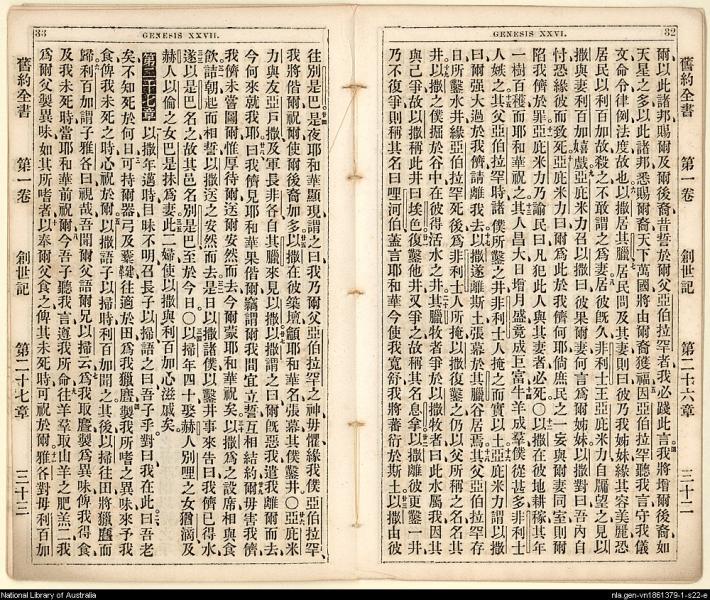 GENESIS XXVI.
32
舊約全書 第一卷 創世記 第二十六章 三十二
爾以此諸邦賜爾及爾後裔昔誓於爾父亞伯拉罕者我必踐此言我將增爾後裔如
天星之多以此諸邦悉賜爾裔天下萬國將由爾裔獲福因亞伯拉罕聽我言守我儀
文命令律例法度故也以撒居其臘居民問及其妻則曰彼乃我姊妹緣其容美麗恐
居民以利百加故殺之不敢謂之爲妻居彼旣久非利士王亞庇米力自牖望之見以
撒與妻利百加嬉戲亞庇米力召以撒曰彼果爾妻何言爲爾姊妹以撒對曰吾內自
忖恐緣彼而致死亞庇米力曰爾爲此於我儕何耶倘庶民之一妄與爾妻同室則爾
陷我儕於罪亞庇米力乃諭民曰凡犯此人與其妻者必死〇以撒在彼地耕稼其年
一樹百穫而耶和華祝之其人昌大日增月盛竟成巨富牛羊成羣僕從甚多非利士
人妬之其父亞伯拉罕時諸僕所鑿之井非利士人掩之而實以土亞庇米力謂以撒
曰爾强大過於我儕請離我去以撒遂離斯土張幕於其臘谷居焉其父亞伯拉罕存
日所鑿水井緣亞伯拉罕死後爲非利士人所掩以撒復鑿之仍以父所稱之名名其
井以撒之僕掘於谷中在彼得活水之井其臘牧者爭於以撒牧者曰此水屬我因其
與己爭故以撒稱此井曰埃色復鑿他井又爭之故稱其名息拿以撒離彼更鑿一井
乃不復爭則稱其名曰哩河伯蓋言耶和華今使我寬舒我將蕃衍於斯土以撒由彼
GENESIS XXVII.
33
往別是巴是夜耶和華顯現謂之曰我乃爾父亞伯拉罕之神毋懼緣我僕亞伯拉罕
我將偕爾祝爾使爾後裔加多以撒在彼築壇籲耶和華名張幕其僕鑿井〇亞庇米
力與友亞戶撒及軍長非各自其臘來見以撒以撒謂之曰爾旣惡我遣我離爾而去
今何來就我耶曰我儕見耶和華果偕爾竊謂爾我間宜立誓互相結約爾毋害我儕
我儕未嘗圖爾惟厚待爾送爾安然而去今爾蒙耶和華祝矣以撒爲之設席相與食
飲詰朝起而相誓以撒送之安然而去是日以撒諸僕以鑿井事來告曰我儕已得水
遂以是巴名之故其邑名別是巴至於今日〇以掃年四十娶赫人別哩之女猶滴及
赫人以倫之女巴是抹爲妻此二婦使以撒與利百加心滋戚矣
第二十七章 以撒年邁時目昧不明召長子以掃語之曰吾子乎對曰我在此曰吾老
矣不知死於何日可持爾器弓及櫜鞬往適於田爲我獵麀製我所嗜之異味來予我
食俾我未死之時心祝於爾以撒語子以掃時利百加聞之其後以掃往田將獵麀而
歸利百加謂子雅各曰視哉吾聞爾父語爾兄以掃云爲我取麀製爲異味俾我得食
及我未死時當耶和華前祝爾今吾子聽我言遵我所命往羊羣取山羊之肥羔二我
爲爾父製異味如其所嗜者以奉爾父食之俾其未死時可祝於爾雅各對母利百加
舊約全書 第一卷 創世記 第二十七章 三十三
National Library of Australia
nla.gen-vn1861379-1-s22-e